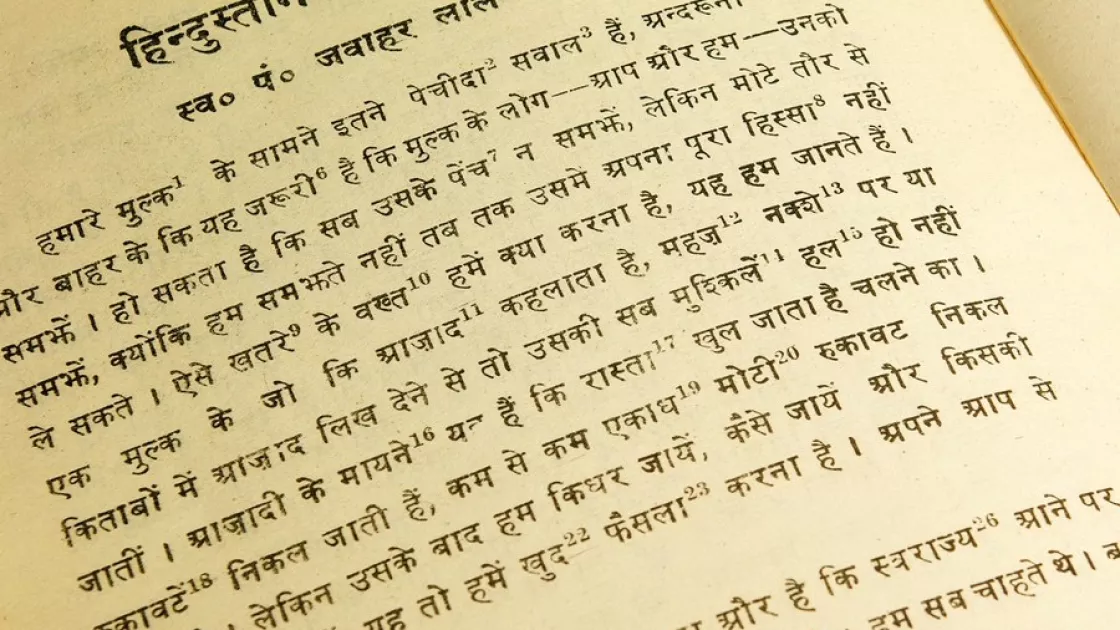 हिन्दुस्तान
स्व० पं० जवाहर लाल
हमारे मुल्क¹ के सामने इतने पेचीदा² सवाल³ हैं, अन्दरूनी
और बाहर के कि यह जरूरी⁶ है कि मुल्क के लोग—आप और हम—उनको
समझें । हो सकता है कि सब उसके पेंच⁷ न समझें, लेकिन मोटे तौर से
समझें, क्योंकि हम समझते नहीं तब तक उसमें अपना पूरा हिस्सा⁸ नहीं
ले सकते । ऐसे ख़तरे⁹ के वख्त¹⁰ हमें क्या करना है, यह हम जानते हैं ।
एक मुल्क के जो कि आज़ाद¹¹ कहलाता है, महज़¹² नक्शे¹³ पर या
किताबों में आज़ाद लिख देने से तो उसकी सब मुश्किलें¹⁴ हल¹⁵ हो नहीं
जातीं । आज़ादी के मायने¹⁶ यह हैं कि रास्ता¹⁷ खुल जाता है चलने का ।
रुकावटें¹⁸ निकल जाती हैं, कम से कम एकाध¹⁹ मोटी²⁰ रुकावट निकल
लेकिन उसके बाद हम किधर जायें, कैसे जायें और किसकी
यह तो हमें खुद²² फैसला²³ करना है । अपने आप से
और है कि स्वराज्य²⁶ आने पर
हम सब चाहते थे ।